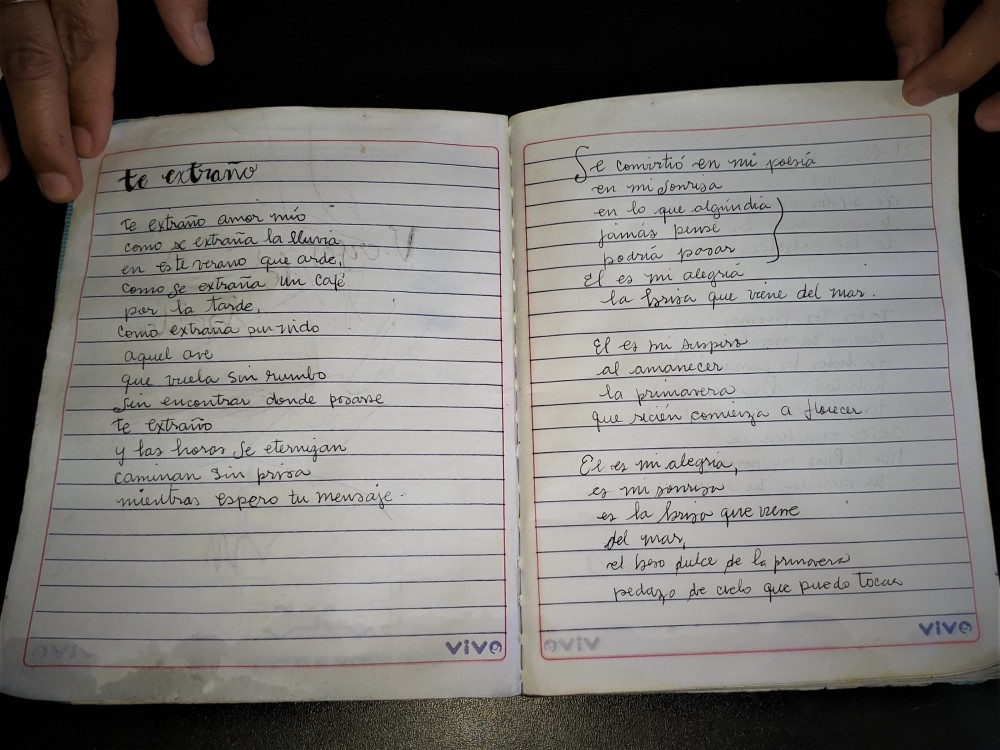 te extraño
te extraño amor mio
como se extraña la lluvia
en este verano que arde,
como se extraña un café
por la tarde,
como extraña su nido
aquel ave
que vuela sin rumbo
sin encontrar donde posarse
te extraño
y las horas se eternizan
caminan sin prisa
mientras espero tu mensaje.
vivo
Se convirtió en mi poesía
en mi sonrisa
en lo que algúndia
jamás pensé
podría pasar
El es mi alegria
la brisa que viene del mar.
El es mi suspiro
al amanecer
la primavera
que recién comienza a florecer
El es mi alegria,
es mi sonrisa
es la brisa que viene
del mar,
el beso dulce de la primavera
pedazo de cielo que puedo tocar
vivo